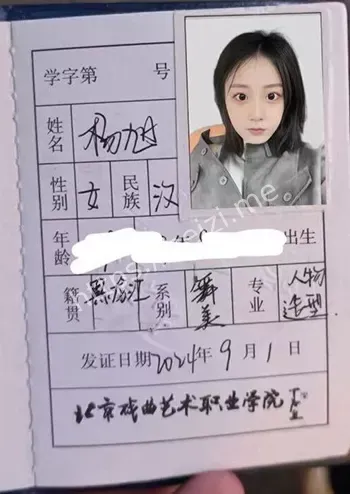 学字第 号
姓名 杨旭
性别 女 民族 汉
年龄 出生
籍贯 黑龙江 系别 舞美 专业 人物造型
发证日期 2024年 9月 1日
北京戏曲艺术职业学院